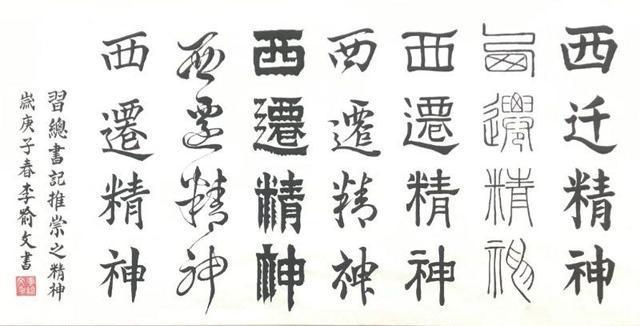 西迁精神
西遷精神
西遷精神
西遷精神
西遷精神
西遷精神
西遷精神
習總書記推崇之精神
歲庚子春李喻文書